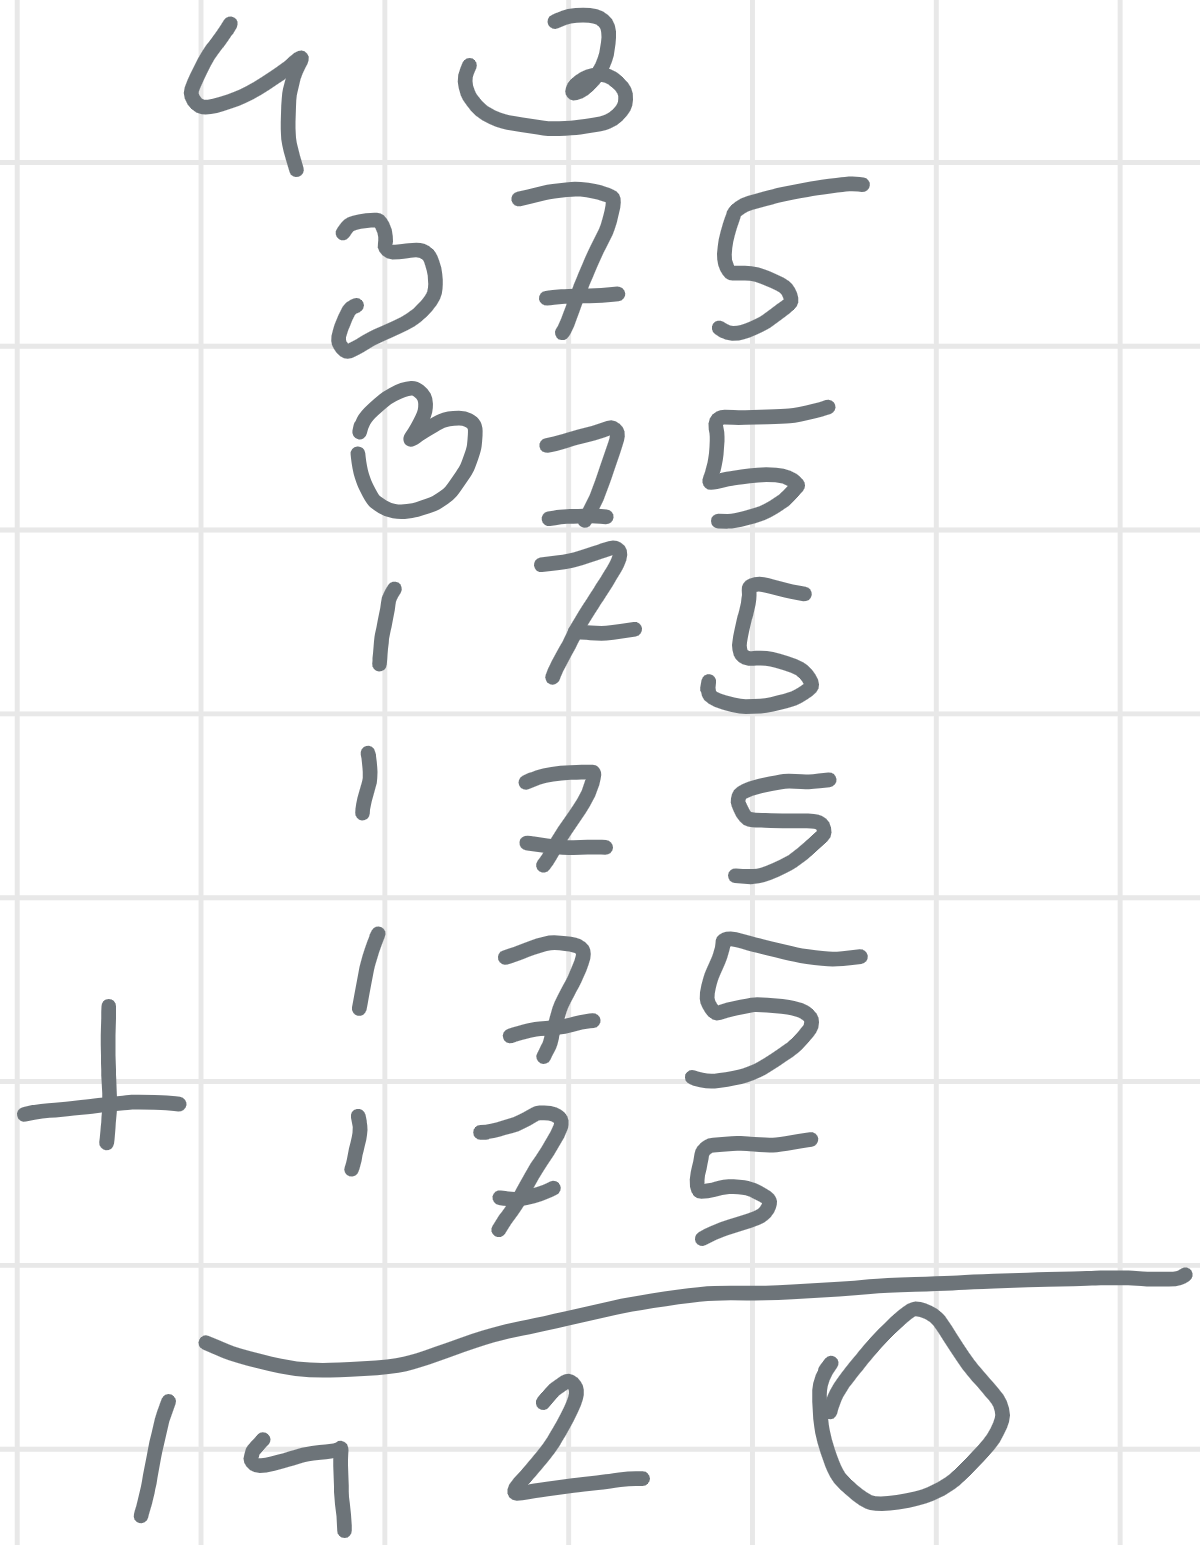 4 3
3 7 5
3 7 5
1 7 5
1 7 5
1 7 5
+ 1 7 5
1 4 2 0